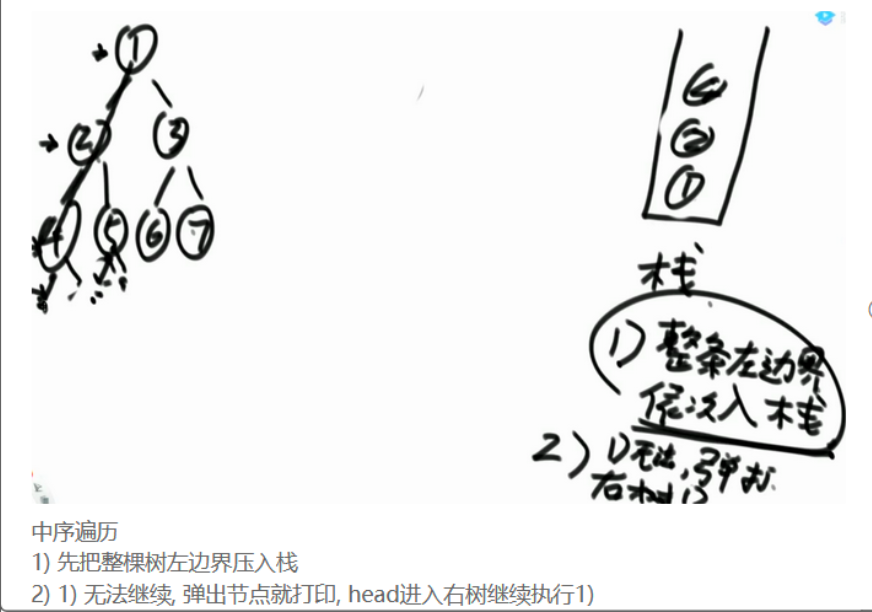 1
2
3
4
5
6
7
4
2
1
栈
1) 整条左边界
依次入栈
2) 1)无法,弹打
右树1)
中序遍历
1) 先把整棵树左边界压入栈
2) 1) 无法继续, 弹出节点就打印, head进入右树继续执行1)